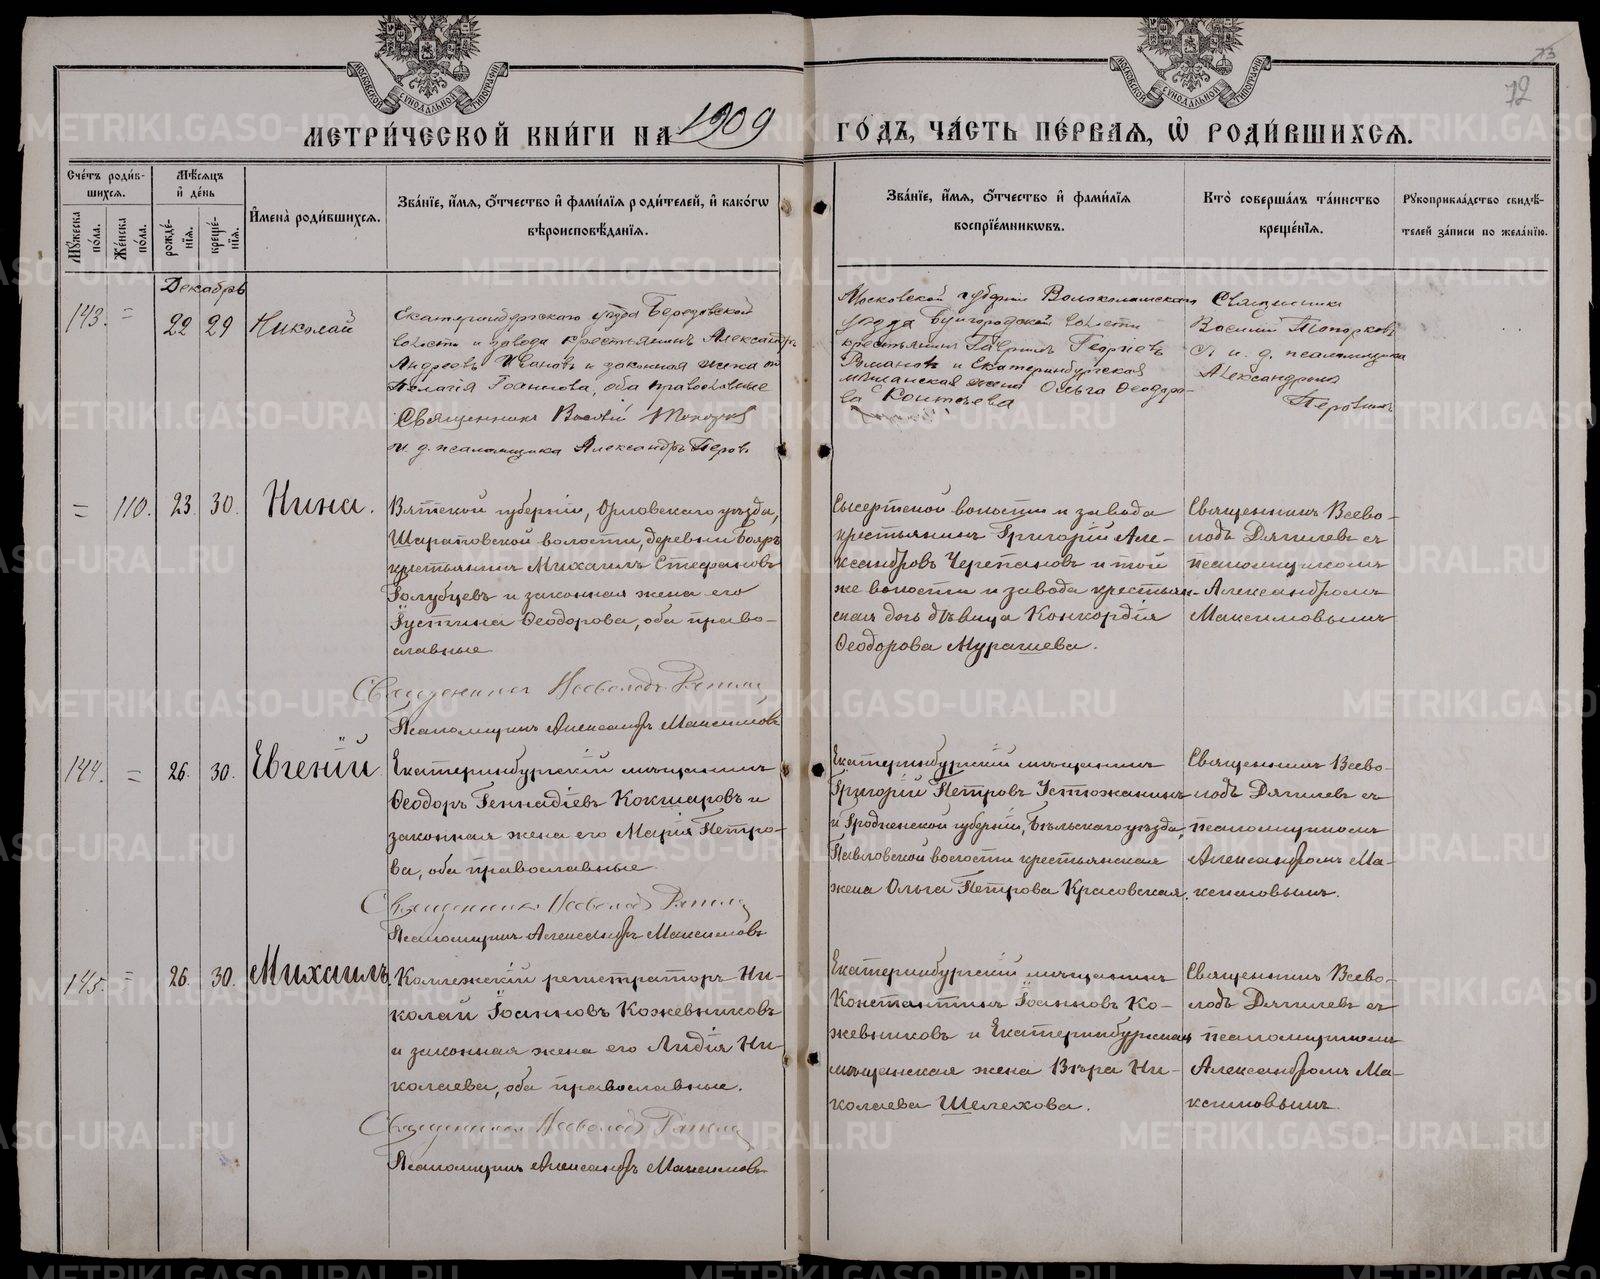 МОСКОВСКОЙ СѴНОДАЛЬНОЙ ТИПОГРАФІИ
МОСКОВСКОЙ СѴНОДАЛЬНОЙ ТИПОГРАФІИ
73
72
МЕТРИ́ЧЕСКОЙ КНИ́ГИ НА 1909 ГО́ДЪ, ЧА́СТЬ ПЕ́РВАЯ, Ѡ҆ РОДИ́ВШИХСѦ.
Сче́тъ роди́в-
шихсѧ.
Мꙋ́жеска
по́ла.
Же́нска
по́ла.
Мѣ́сѧцъ
и҆ де́нь
рожде́-
нїѧ.
креще́-
нїѧ.
И҆мена̀ роди́вшихсѧ.
Зва́нїе, и҆́мѧ, ѻ҆́тчество и҆ фами́лїѧ роди́телей, и҆ како́гѡ
вѣроисповѣ́данїѧ.
Зва́нїе, и҆́мѧ, ѻ҆́тчество и҆ фами́лїѧ
воспрїе́мникѡвъ.
Кто̀ соверша́лъ та́инство
креще́нїѧ.
Рꙋкоприкла́дство свидѣ́-
телей за́писи по жела́нїю.
Декабрь
143. = 22 29 Николай
Екатеринбургскаго уѣзда Березовской
волости и завода крестьянинъ Александръ
Андреевъ Ивановъ и законная жена его
Пелагія Іоаннова, оба православные
Священникъ Василій Топорков
и. д. псаломщика Александръ Перов
Московской губерніи Волоколамскаго
уѣзда Буйгородской волости
крестьянинъ Гавріилъ Георгіевъ
Романовъ и Екатеринбургская
мѣщанская жена Ольга Ѳеодоро-
ва
Священникъ
Василій Топорковъ
и. д. псаломщика
Александромъ
= 110. 23. 30. Нина.
Вятской губерніи, Орловскаго уѣзда,
Шараповской волости, деревни Бояръ
крестьянинъ Михаилъ Стефановъ
Голубцевъ и законная жена его
Іустина Ѳеодорова, оба право-
славные
Священникъ Всеволодъ Дягилев
Псаломщикъ Александръ Максимовъ
Сысертской волости и завода
крестьянинъ Григорій Але-
ксандровъ Черепановъ и той
же волости и завода крестьян-
ская дочь дѣвица Конкордія
Ѳеодорова Мурашева.
Священникъ Всево-
лодъ Дягилевъ съ
псаломщикомъ
Александромъ
Максимовымъ
144. = 26. 30. Евгеній
Екатеринбургскій мѣщанинъ
Ѳеодоръ Геннадіевъ Кокшаровъ и
законная жена его Марія Петро-
ва, оба православные
Священникъ Всеволодъ Дягилев
Псаломщикъ Александръ Максимовъ
Екатеринбургскій мѣщанинъ
Григорій Петровъ Устюжанинъ
и Гродненской губерніи, Бѣльскаго уѣзда,
Павловской волости крестьянская
жена Ольга Петрова Красовская.
Священникъ Всево-
лодъ Дягилевъ съ
псаломщикомъ
Александромъ Ма-
ксимовымъ.
145. = 26. 30. Михаилъ
Коллежскій регистраторъ Ни-
колай Іоанновъ Кожевниковъ
и законная жена его Лидія Ни-
колаева, оба православные.
Священникъ Всеволодъ Дягилев
Псаломщикъ Александръ Максимовъ
Екатеринбургскій мѣщанинъ
Константинъ Іоанновъ Ко-
жевниковъ и Екатеринбургская
мѣщанская жена Вѣра Ни-
колаева Шелехова.
Священникъ Всево-
лодъ Дягилевъ съ
псаломщикомъ
Александромъ Ма-
ксимовымъ.
METRIKI.GASO-URAL.RU